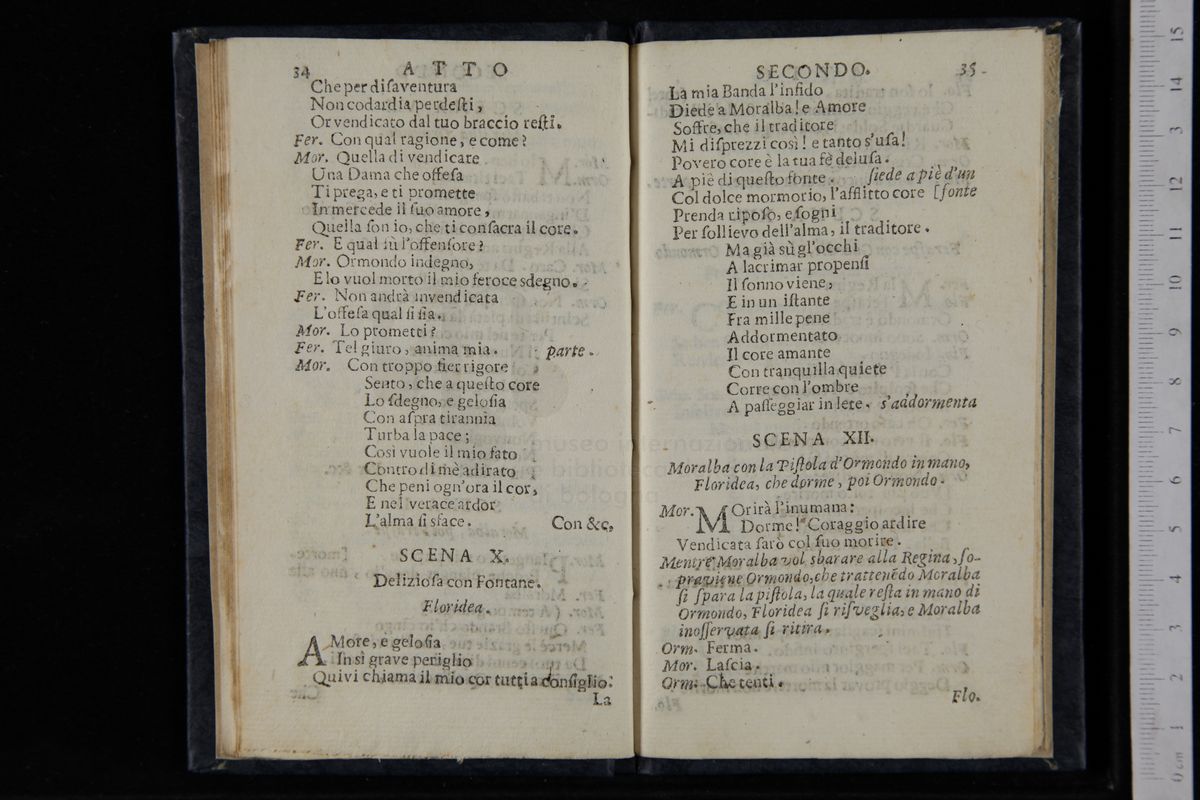 34 ATTO
Che per diſaventura
Non codardia perdeſti,
Or vendicato dal tuo braccio reſti.
Fer. Con qual ragione, e come?
Mor. Quella di vendicare
Una Dama che offeſa
Ti prega, e ti promette
In mercede il ſuo amore,
Quella ſon io, che ti conſacra il core.
Fer. E qual fù l'offenſore?
Mor. Ormondo indegno,
E lo vuol morto il mio feroce sdegno.
Fer. Non andrà invendicata
L'offeſa qual ſi ſia.
Mor. Lo prometti?
Fer. Tel giuro, anima mia. parte.
Mor. Con troppo fier rigore
Sento, che a queſto core
Lo ſdegno, e geloſia
Con aſpra tirannia
Turba la pace;
Così vuole il mio fato
Contro di mè adirato
Che peni ogn'ora il cor,
E nel verace ardor
L'alma ſi sface. Con &c,
SCENA X.
Delizioſa con Fontane.
Floridea.
AMore, e geloſia
In sì grave periglio
Quivi chiama il mio cor tutti a conſiglio:
La
SECONDO. 35
La mia Banda l'infido
Diede a Moralba! e Amore
Soffre, che il traditore
Mi diſprezzi così! e tanto s'uſa!
Povero core è la tua fè deluſa.
A piè di queſto fonte. ſiede a piè d'un
Col dolce mormorio, l'afflitto core [fonte
Prenda ripoſo, e ſogni
Per ſollievo dell'alma, il traditore.
Ma già sù gl'occhi
A lacrimar propenſi
Il ſonno viene,
E in un iſtante
Fra mille pene
Addormentato
Il core amante
Con tranquilla quiete
Corre con l'ombre
A paſſeggiar in lete. s'addormenta
SCENA XII.
Moralba con la Piſtola d'Ormondo in mano,
Floridea, che dorme, poi Ormondo.
Mor. MOrirà l'inumana:
Dorme! Coraggio ardire
Vendicata ſarò col ſuo morire.
Mentre Moralba vol sbarare alla Regina, ſo-
praviene Ormondo, che trattenẽdo Moralba
ſi ſpara la piſtola, la quale reſta in mano di
Ormondo, Floridea ſi riſveglia, e Moralba
inoſſervata ſi ritira.
Orm. Ferma.
Mor. Laſcia.
Orm. Che tenti.
Flo.